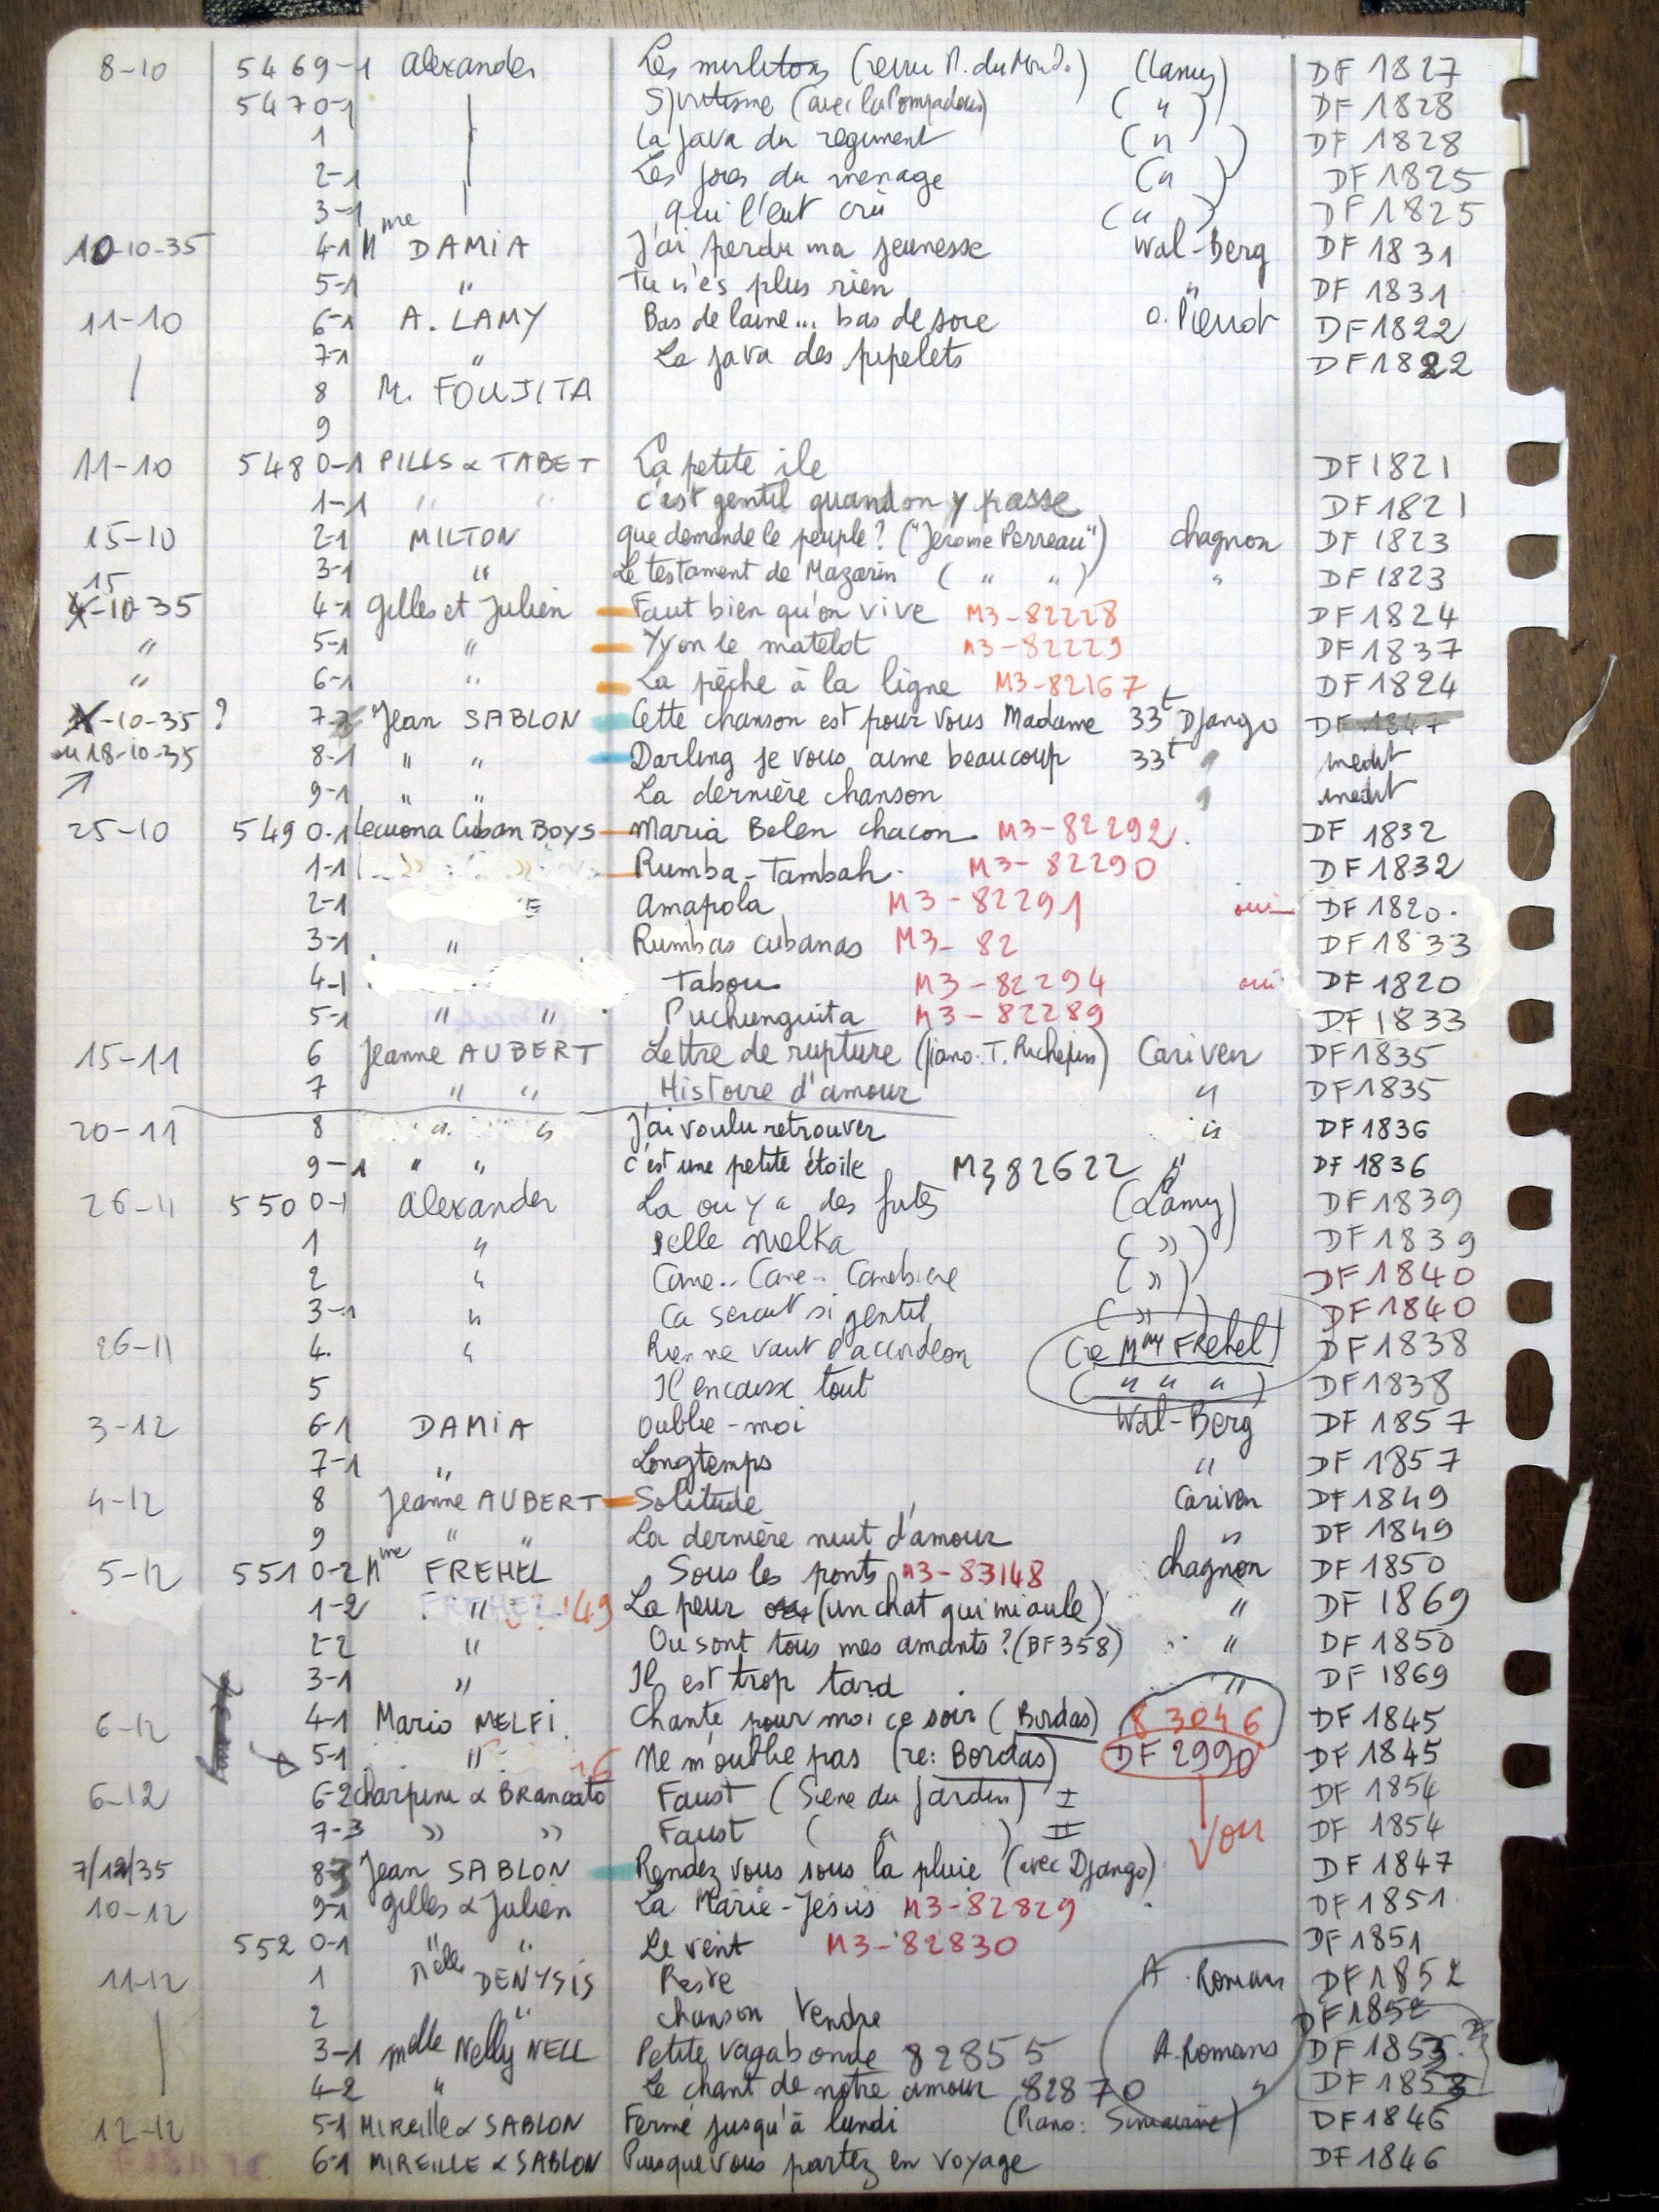 8-10 5469-1 Alexander Les mirlitons (revue M. du Mond.) (Lamy) DF 1827
5470-1 (avec la Pompadour) ( " ) DF 1828
1 La java du regiment ( " ) DF 1828
2-1 Les joies du menage ( " ) DF 1825
3-1 Qui l'eut crû ( " ) DF 1825
10-10-35 4-1 Mme DAMIA J'ai perdu ma jeunesse Wal-Berg DF 1831
5-1 " Tu n'es plus rien " DF 1831
11-10 6-1 A. LAMY Bas de laine... bas de soie O. Pierrot DF 1822
7-1 " La java des pipelets DF 1822
8 M. FOUJITA
9
11-10 5480-1 PILLS & TABET La petite ile DF 1821
1-1 " " C'est gentil quand on y passe DF 1821
15-10 2-1 MILTON Que demande le peuple? ("Jerome Perreau") Chagnon DF 1823
3-1 " Le testament de Mazarin ( " " ) " DF 1823
15-10-35 4-1 Gilles et Julien Faut bien qu'on vive M3-82228 DF 1824
" 5-1 " Yvon le matelot M3-82229 DF 1837
" 6-1 " La pêche à la ligne M3-82167 DF 1824
-10-35 ? 7- Jean SABLON Cette chanson est pour vous Madame 33t Django DF 1847
ou 18-10-35 8-1 " " Darling je vous aime beaucoup 33t " inedit
9-1 " " La dernière chanson " inedit
25-10 5490-1 Lecuona Cuban Boys Maria Belen chacon. M3-82292. DF 1832
1-1 " " Rumba-Tambah. M3-82290 DF 1832
2-1 Amapola M3-82291 oui DF 1820.
3-1 " Rumbas cubanas M3-82 DF 1833
4-1 Tabou M3-82294 oui DF 1820
5-1 " " Puchunguita M3-82289 DF 1833
15-11 6 Jeanne AUBERT Lettre de rupture (piano. T. Richepin) Cariven DF 1835
7 " " Histoire d'amour " DF 1835
20-11 8 " " J'ai voulu retrouver " DF 1836
9-1 " " C'est une petite étoile M382622 " DF 1836
26-11 5500-1 Alexander La ou y a des futs (Lamy) DF 1839
1 " ( " ) DF 1839
2 " Cane.. Cane.. Canebiere ( " ) DF 1840
3-1 " Ca serait si gentil ( " ) DF 1840
26-11 4. " Rien ne vaut l'accordeon (re Mme FREHEL) DF 1838
5 Il encaisse tout ( " " " ) DF 1838
3-12 6-1 DAMIA Oublie-moi Wal-Berg DF 1857
7-1 " Longtemps " DF 1857
4-12 8 Jeanne AUBERT Solitude Cariven DF 1849
9 " " La dernière nuit d'amour " DF 1849
5-12 5510-2 Mme FREHEL Sous les ponts M3-83148 Chagnon DF 1850
1-2 " 149 La peur (un chat qui miaule) " DF 1869
2-2 " Ou sont tous mes amants? (DF358) " DF 1850
3-1 " Il est trop tard " DF 1869
6-12 4-1 Mario MELFI. Chante pour moi ce soir (Bordas) 83046 DF 1845
5-1 " Ne m'oublie pas (re: Bordas) DF 2990 DF 1845
6-12 6-2 Charpini & Brancato Faust (Scene du jardin) I DF 1854
7-3 " " Faust ( " ) II Voir DF 1854
7/12/35 8- Jean SABLON Rendez vous sous la pluie (avec Django) DF 1847
10-12 9-1 Gilles & Julien La Marie-Jésus M3-82829 DF 1851
5520-1 " " Le vent M3-82830 DF 1851
11-12 1 Melle DENYSIS Reste A. Romans DF 1852
2 " Chanson tendre DF 1852
3-1 Melle Nelly NELL Petite vagabonde 82855 A. Romans DF 1853 ?
4-2 " Le chant de notre amour 82870 " DF 1853
12-12 5-1 MIREILLE & SABLON Fermé jusqu'à lundi (Piano: ) DF 1846
6-1 MIREILLE & SABLON Puisque vous partez en voyage DF 1846